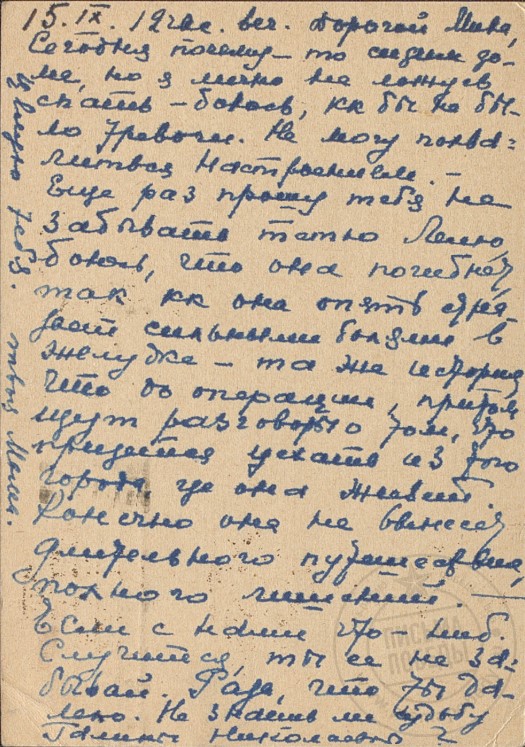 15.IX. 12 час. веч. Дорогой Мика,
Сегодня почему-то сидим до-
ма, но я лично не ложусь
спать – боюсь, кк бы не бы-
ло тревоги. Не могу похва-
литься настроением. –
Еще раз прошу тебя не
забывать тетю Лелю,
боюсь, что она погибнет,
так кк она опять стра-
дает сильными болями в
желудке – та же история
что до операции, притом
идут разговоры о том, что
придется уехать из того
города где она живет.
Конечно она не вынесет
длительного путешествия,
полного лишений. –
Если с нами что-ниб.
Случится, ты ее не за-
бывай. Рада, что ты да-
леко. Не знаешь ли судьбу
Галины Николаевны?
Целую тебя. твоя Мама.
ПИСЬМА
ПОБЕДЫ